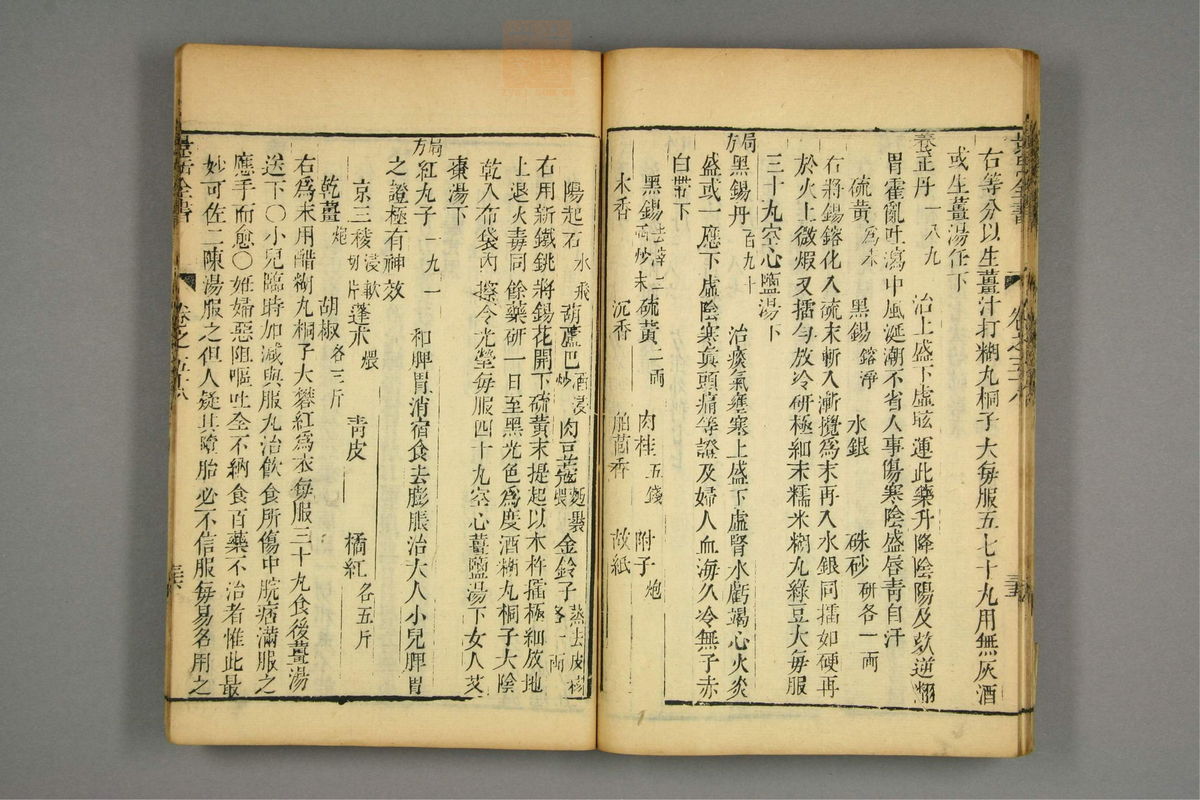 右等分以生薑汁打糊丸桐子大每服五七十丸用無灰酒
或生薑湯任下
養正丹一八九 治上盛下虛眩運此藥升降陰陽及欬逆翻
胃霍亂吐瀉中風涎潮不省人事傷寒陰盛唇青自汗
硫黃為末 黑錫鎔淨 水銀 硃砂研各一兩
右將錫鎔化入硫末漸入漸攪為末再入水銀同擂如硬再
於火上微煆又擂勻放冷研極細末糯米糊丸綠豆大每服
三十丸空心鹽湯下
局方黑錫丹百九十 治痰氣壅塞上盛下虛腎水虧竭心火炎
盛或一應下虛陰寒真頭痛等證及婦人血海久冷無子赤
白帶下
黑錫去滓二兩炒末 硫黃二兩 肉桂五錢 附子炮
木香 沉香 舶茴香 故紙
陽起石水飛 葫蘆巴酒浸炒 肉荳蔻麪裹煨 金鈴子蒸去皮核各一兩
右用新鐵銚將錫花開下硫黃末提起以木杵擂極細放地
上退火毒同餘藥研一日至黑光色為度酒糊丸桐子大陰
乾入布袋內擦令光瑩每服四十丸空心薑鹽湯下女人艾
棗湯下
局方紅丸子一九一 和脾胃消宿食去膨脹治大人小兒脾胃
之證極有神效
京三稜浸軟切片 蓬朮煨 青皮 橘紅各五斤
乾薑炮 胡椒各三斤
右為末用醋糊丸桐子大礬紅為衣每服三十丸食後薑湯
送下〇小兒臨時加減與服丸治飲食所傷中脘痞滿服之
應手而愈〇妊婦惡阻嘔吐全不納食百藥不治者惟此最
妙可佐二陳湯服之但人疑其墮胎必不信服每易名用之
景岳全書 卷之五十八